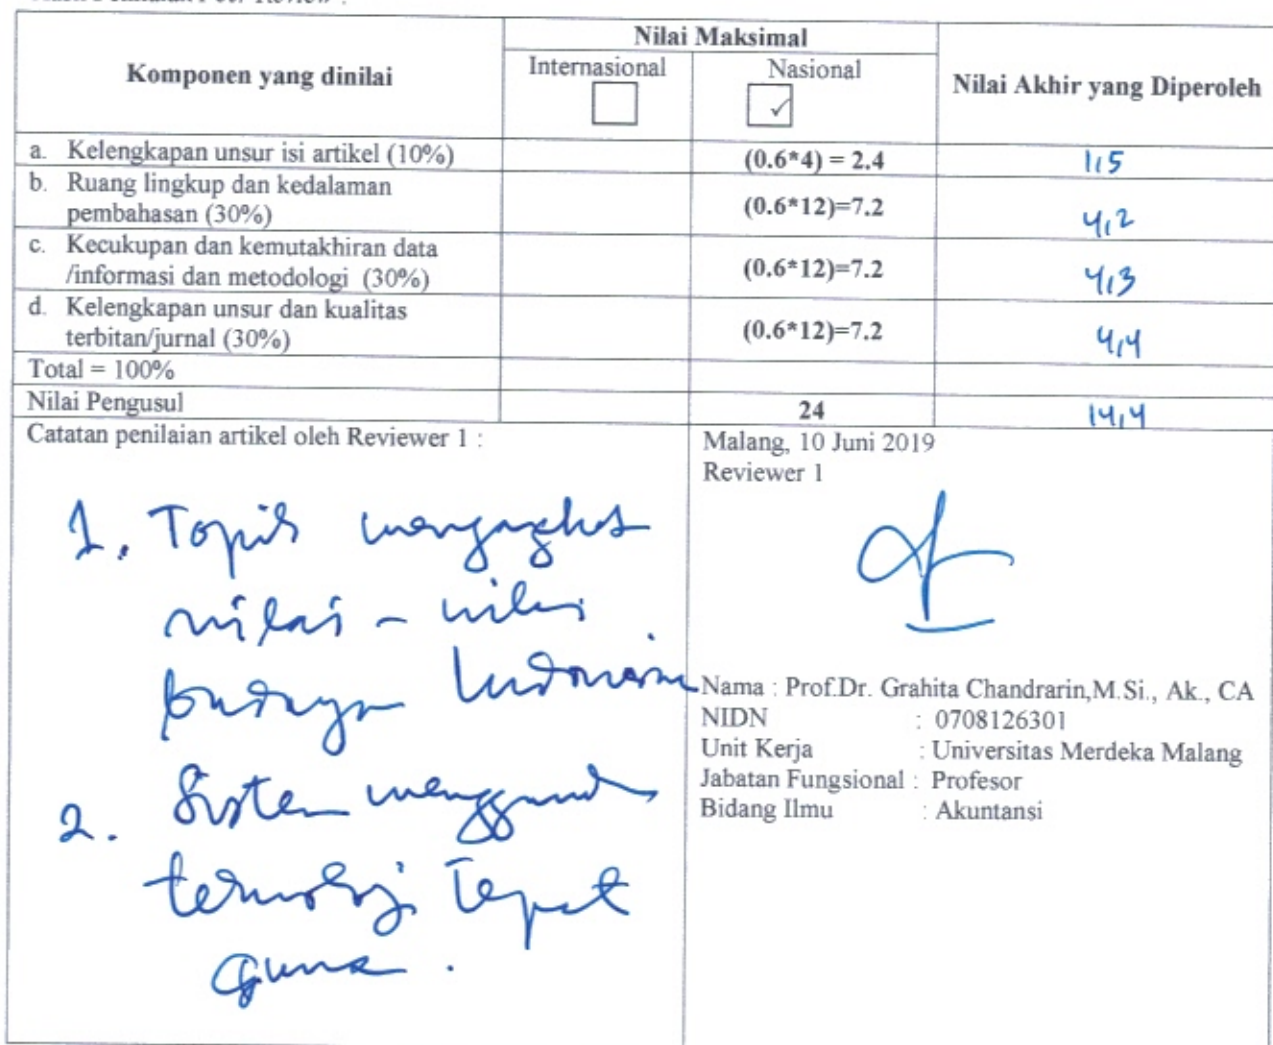 Nilai Maksimal
Komponen yang dinilai
Internasional
Nasional
✓
Nilai Akhir yang Diperoleh
a. Kelengkapan unsur isi artikel (10%)
(0.6*4) = 2.4
1,5
b. Ruang lingkup dan kedalaman
pembahasan (30%)
(0.6*12)=7.2
4,2
c. Kecukupan dan kemutakhiran data
/informasi dan metodologi (30%)
(0.6*12)=7.2
4,3
d. Kelengkapan unsur dan kualitas
terbitan/jurnal (30%)
(0.6*12)=7.2
4,4
Total = 100%
Nilai Pengusul
24
14,4
Catatan penilaian artikel oleh Reviewer 1 :
1. Topik mengangkat
nilai - nilai
budaya Indonesia
2. Sistem
teknologi tepat
guna.
Malang, 10 Juni 2019
Reviewer 1
Nama : Prof.Dr. Grahita Chandrarin,M.Si., Ak., CA
NIDN : 0708126301
Unit Kerja : Universitas Merdeka Malang
Jabatan Fungsional : Profesor
Bidang Ilmu : Akuntansi